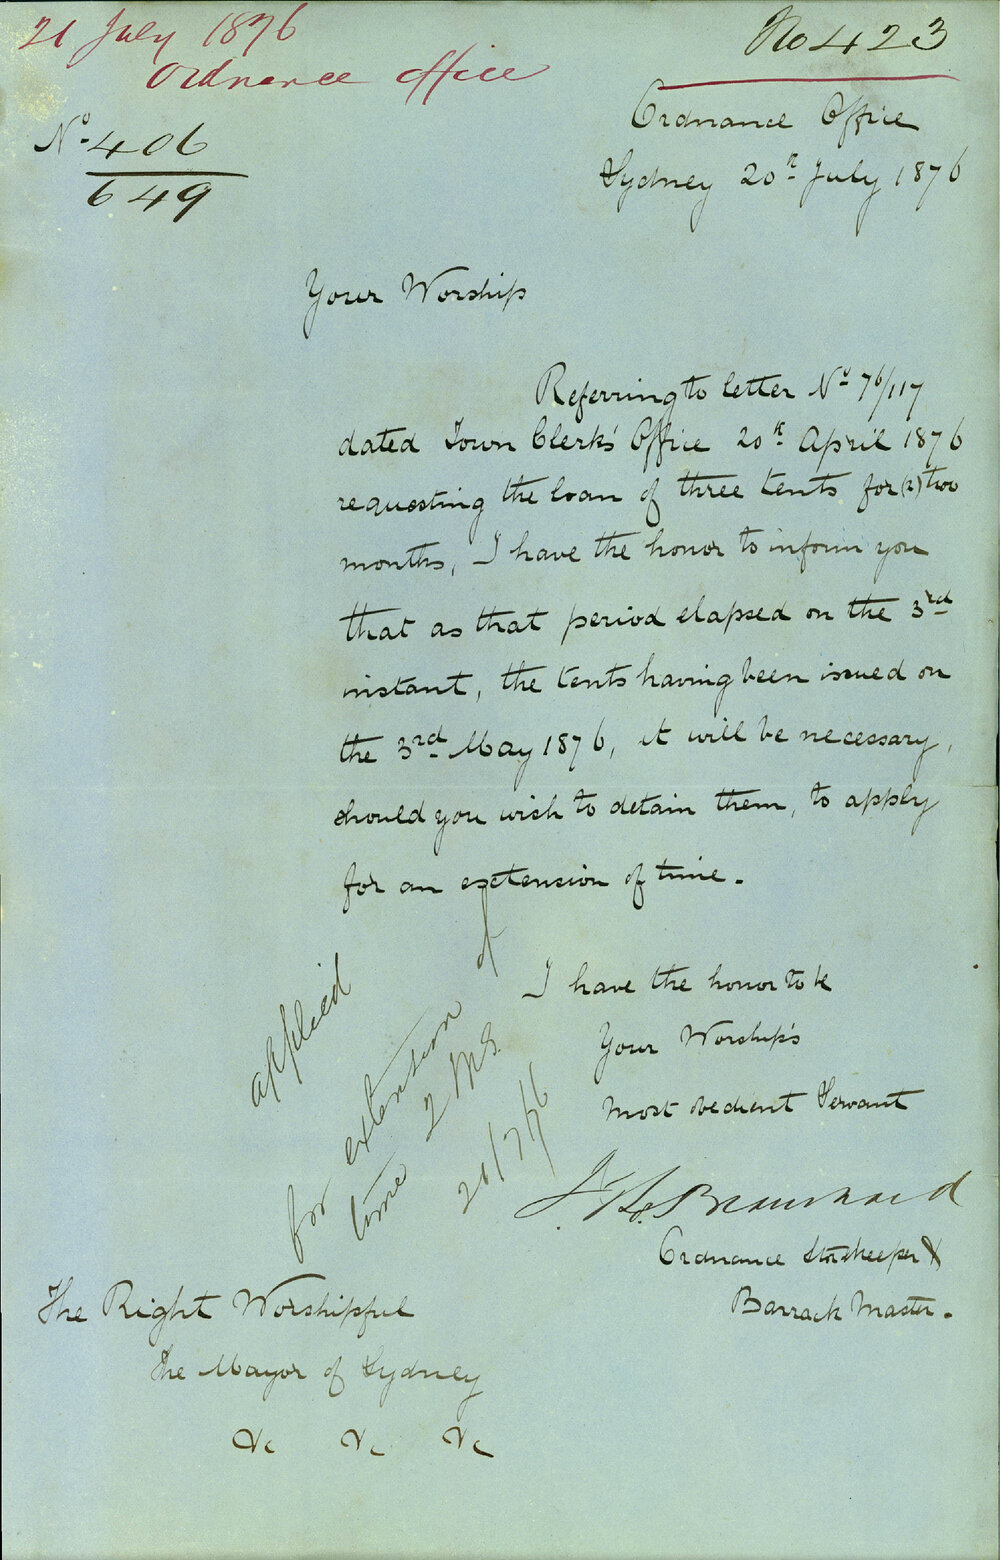 21 July 1876
Ordnance Office
No 423
No. 406
649
Ordnance Office
Sydney 20th July 1876
Your Worship
Referring to letter No 76/117
dated Town Clerk's Office 20th April 1876
requesting the loan of three tents for (2) two
months, I have the honor to inform you
that as that period elapsed on the 3rd
instant, the tents having been issued on
the 3rd May 1876, it will be necessary,
should you wish to detain them, to apply
for an extension of time.
I have the honor to be
Your Worship's
most obedient Servant
Ordnance Storekeeper &
Barrack Master.
applied
for extension of
time 2 Ms.
21/7/76
The Right Worshipful
The Mayor of Sydney
&c &c &c